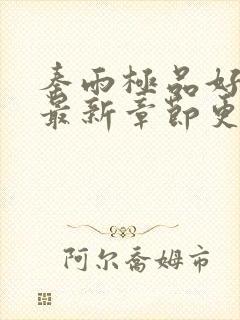 秦雨極品好
最新章節更
阿尔喬姆市